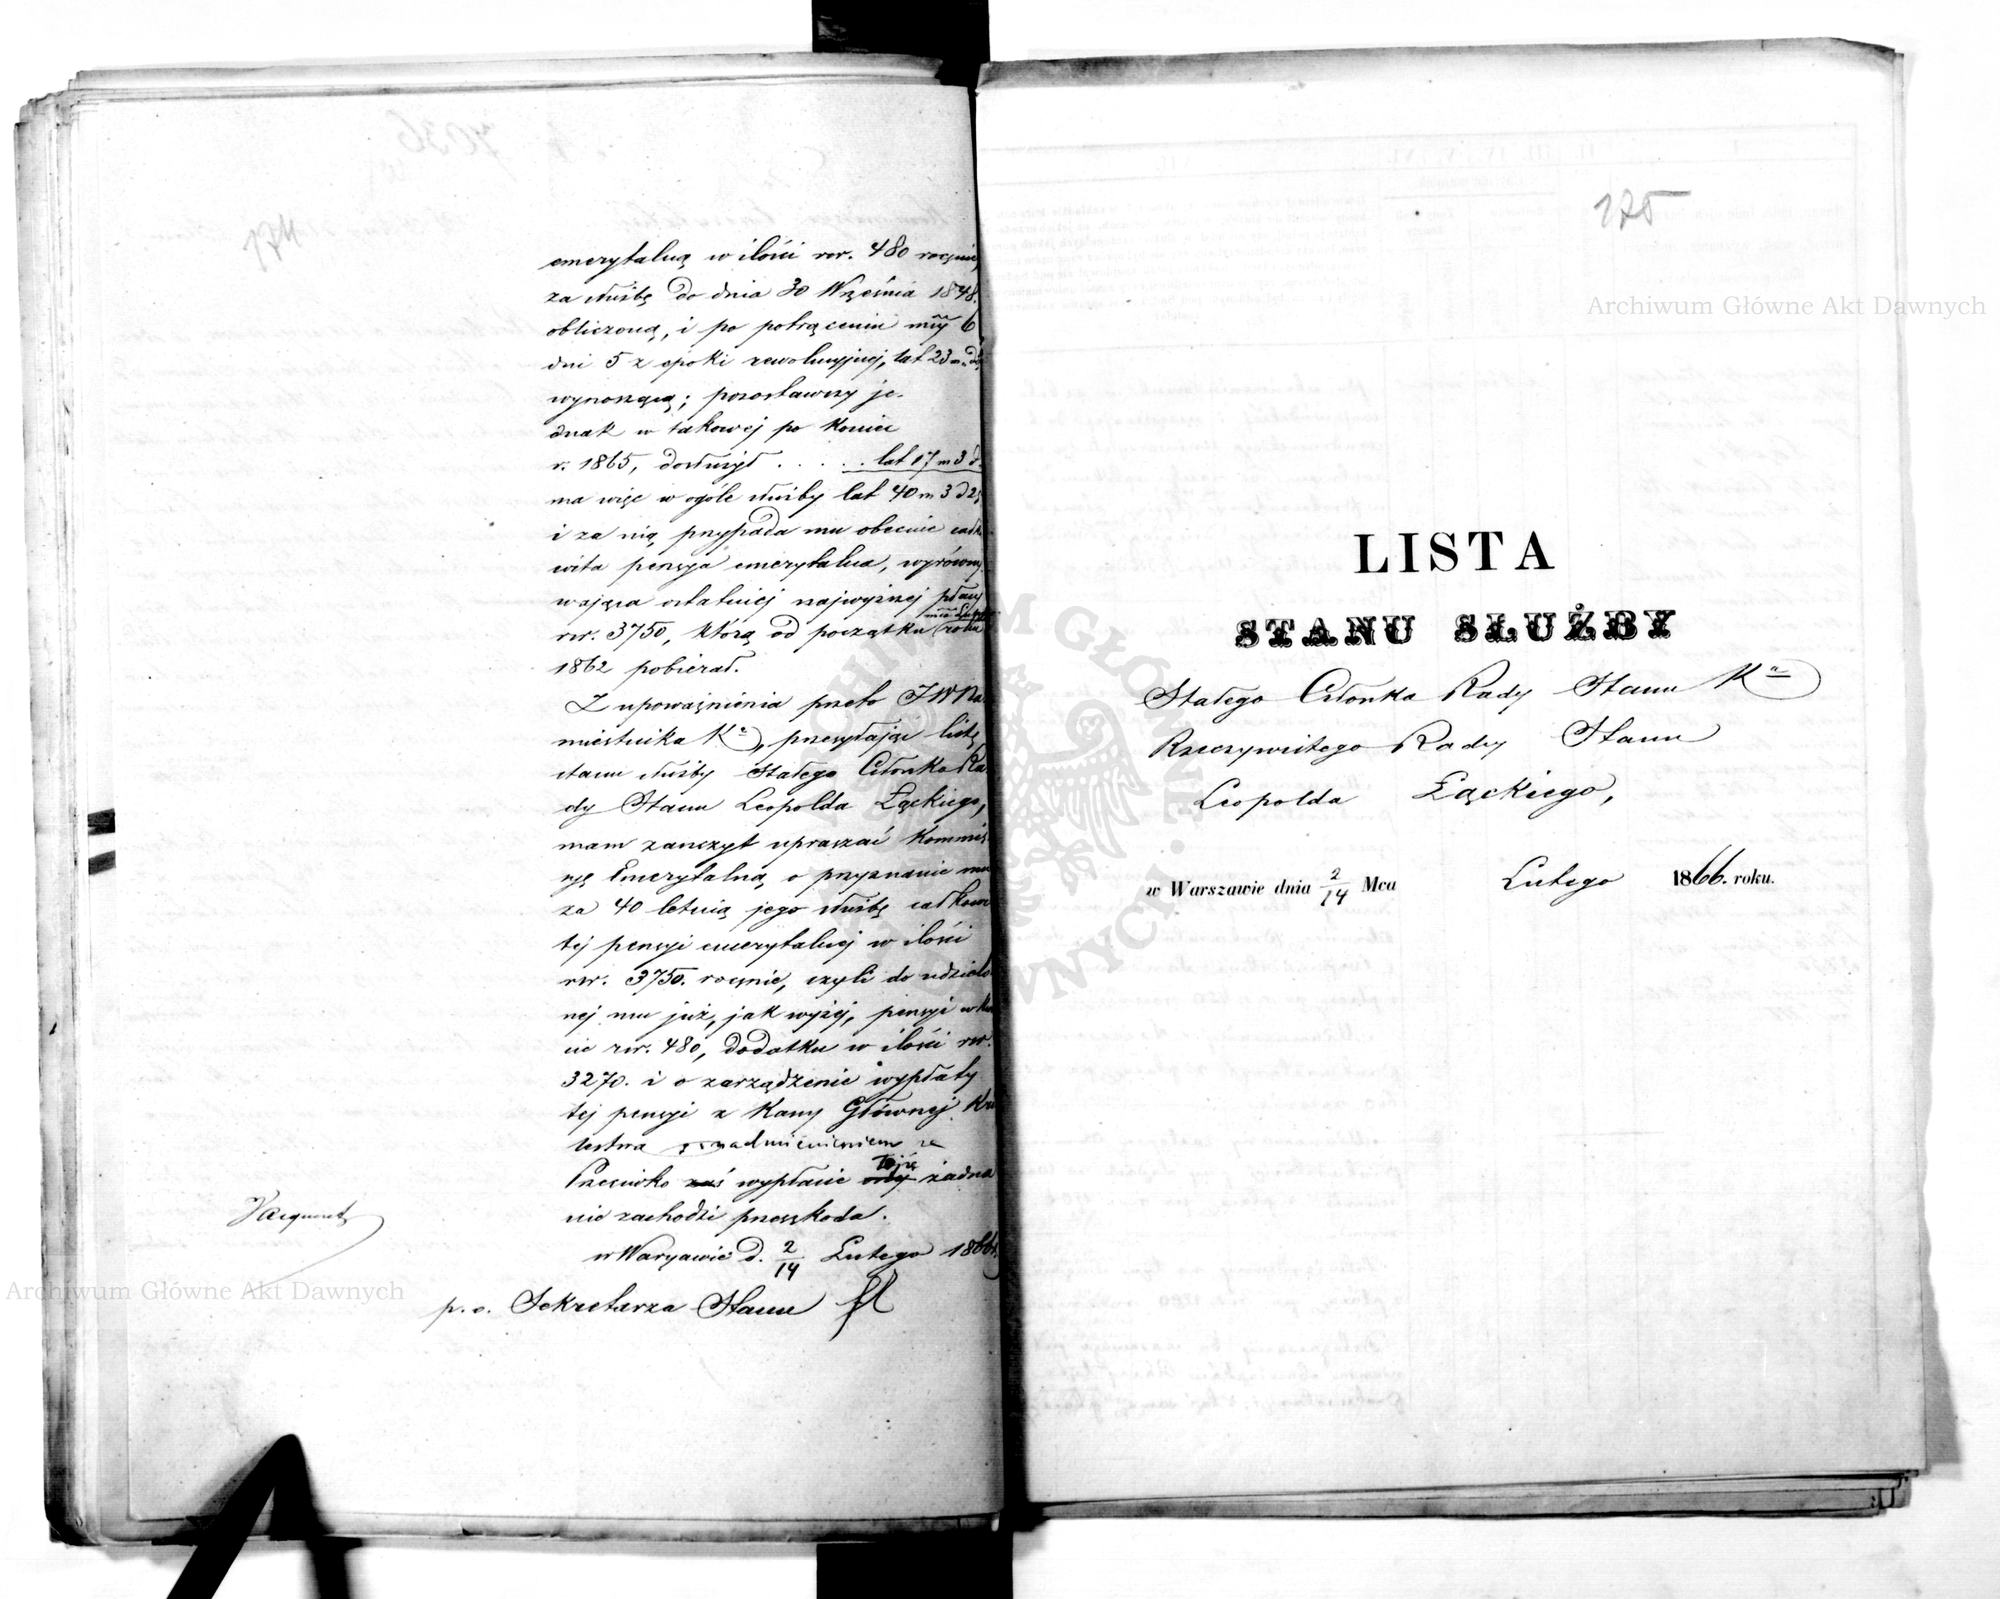 emerytalną w ilości rsr. 480 rocznie,
za służbę do dnia 30 Września 1848.
obliczoną, i po potrąceniu mcy 6
dni 5 z epoki rewolucyjnej, lat 23 m.
wynoszącą; pozostawszy je-
dnak w takowej po koniec
r. 1865, dosłużył . . . . . lat 17 m 3 d.
ma więc w ogóle służby lat 40 m 3 d
i za nią przypada mu obecnie całko-
wita pensya emerytalna, wyrówny-
wająca ostatniej najwyższej płacy
rsr. 3750, którą od początku roku
1862 pobierał.
Z upoważnienia przeto JW Na-
miestnika Kr., przesyłając listę
stanu służby Stałego Członka Ra-
dy Stanu Leopolda Łąckiego,
mam zaszczyt upraszać Kommis-
syę Emerytalną o przyznanie mu
za 40 letnią jego służbę całkowi-
tej pensyi emerytalnej w ilości
rsr. 3750. rocznie, czyli do udzielo-
nej mu już, jak wyżej, pensyi w kwo-
cie rsr. 480, dodatku w ilości rsr.
3270. i o zarządzenie wypłaty
tej pensyi z Kassy Głównej Kró-
lestwa z nadmienieniem że
Przeciwko wypłacie tejże żadna
nie zachodzi przeszkoda.
w Warszawie d. 2/14 Lutego 1866 r.
p. o. Sekretarza Stanu
Archiwum Główne Akt Dawnych
175
Archiwum Główne Akt Dawnych
LISTA
STANU SŁUŻBY
Stałego Członka Rady Stanu Kr.
Rzeczywistego Radcy Stanu
Leopolda Łąckiego,
w Warszawie dnia 2/14 Mca Lutego 1866. roku.